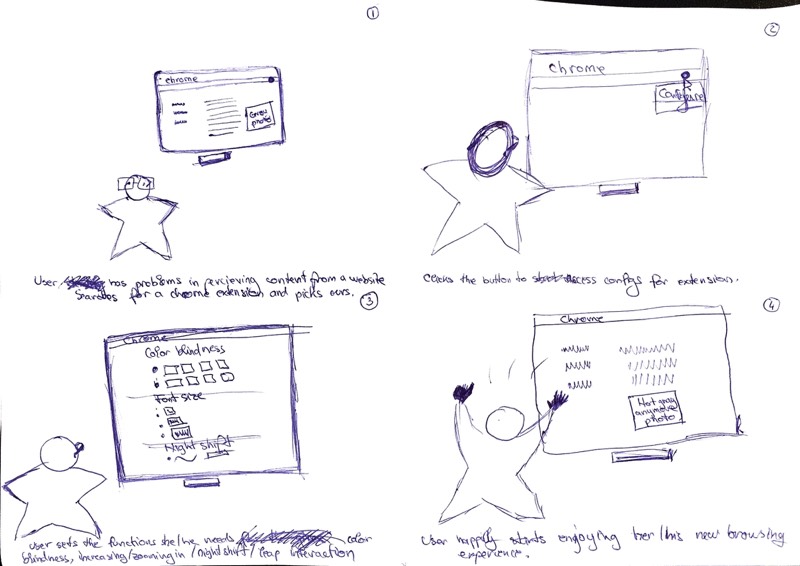 1
chrome
Grey
photo
User has problems in percieving content from a website
searches for a chrome extension and picks ours.
2
chrome
Configure
Clicks the button to access configs for extension.
3
Chrome
Color blindness
Font size
Night shift
User sets the functions she/he needs color
blindness, increasing/zooming in /nightshift/ leap interaction
4
Chrome
Not gray
anymore
photo
User happily starts enjoying her/his new browsing
experience.